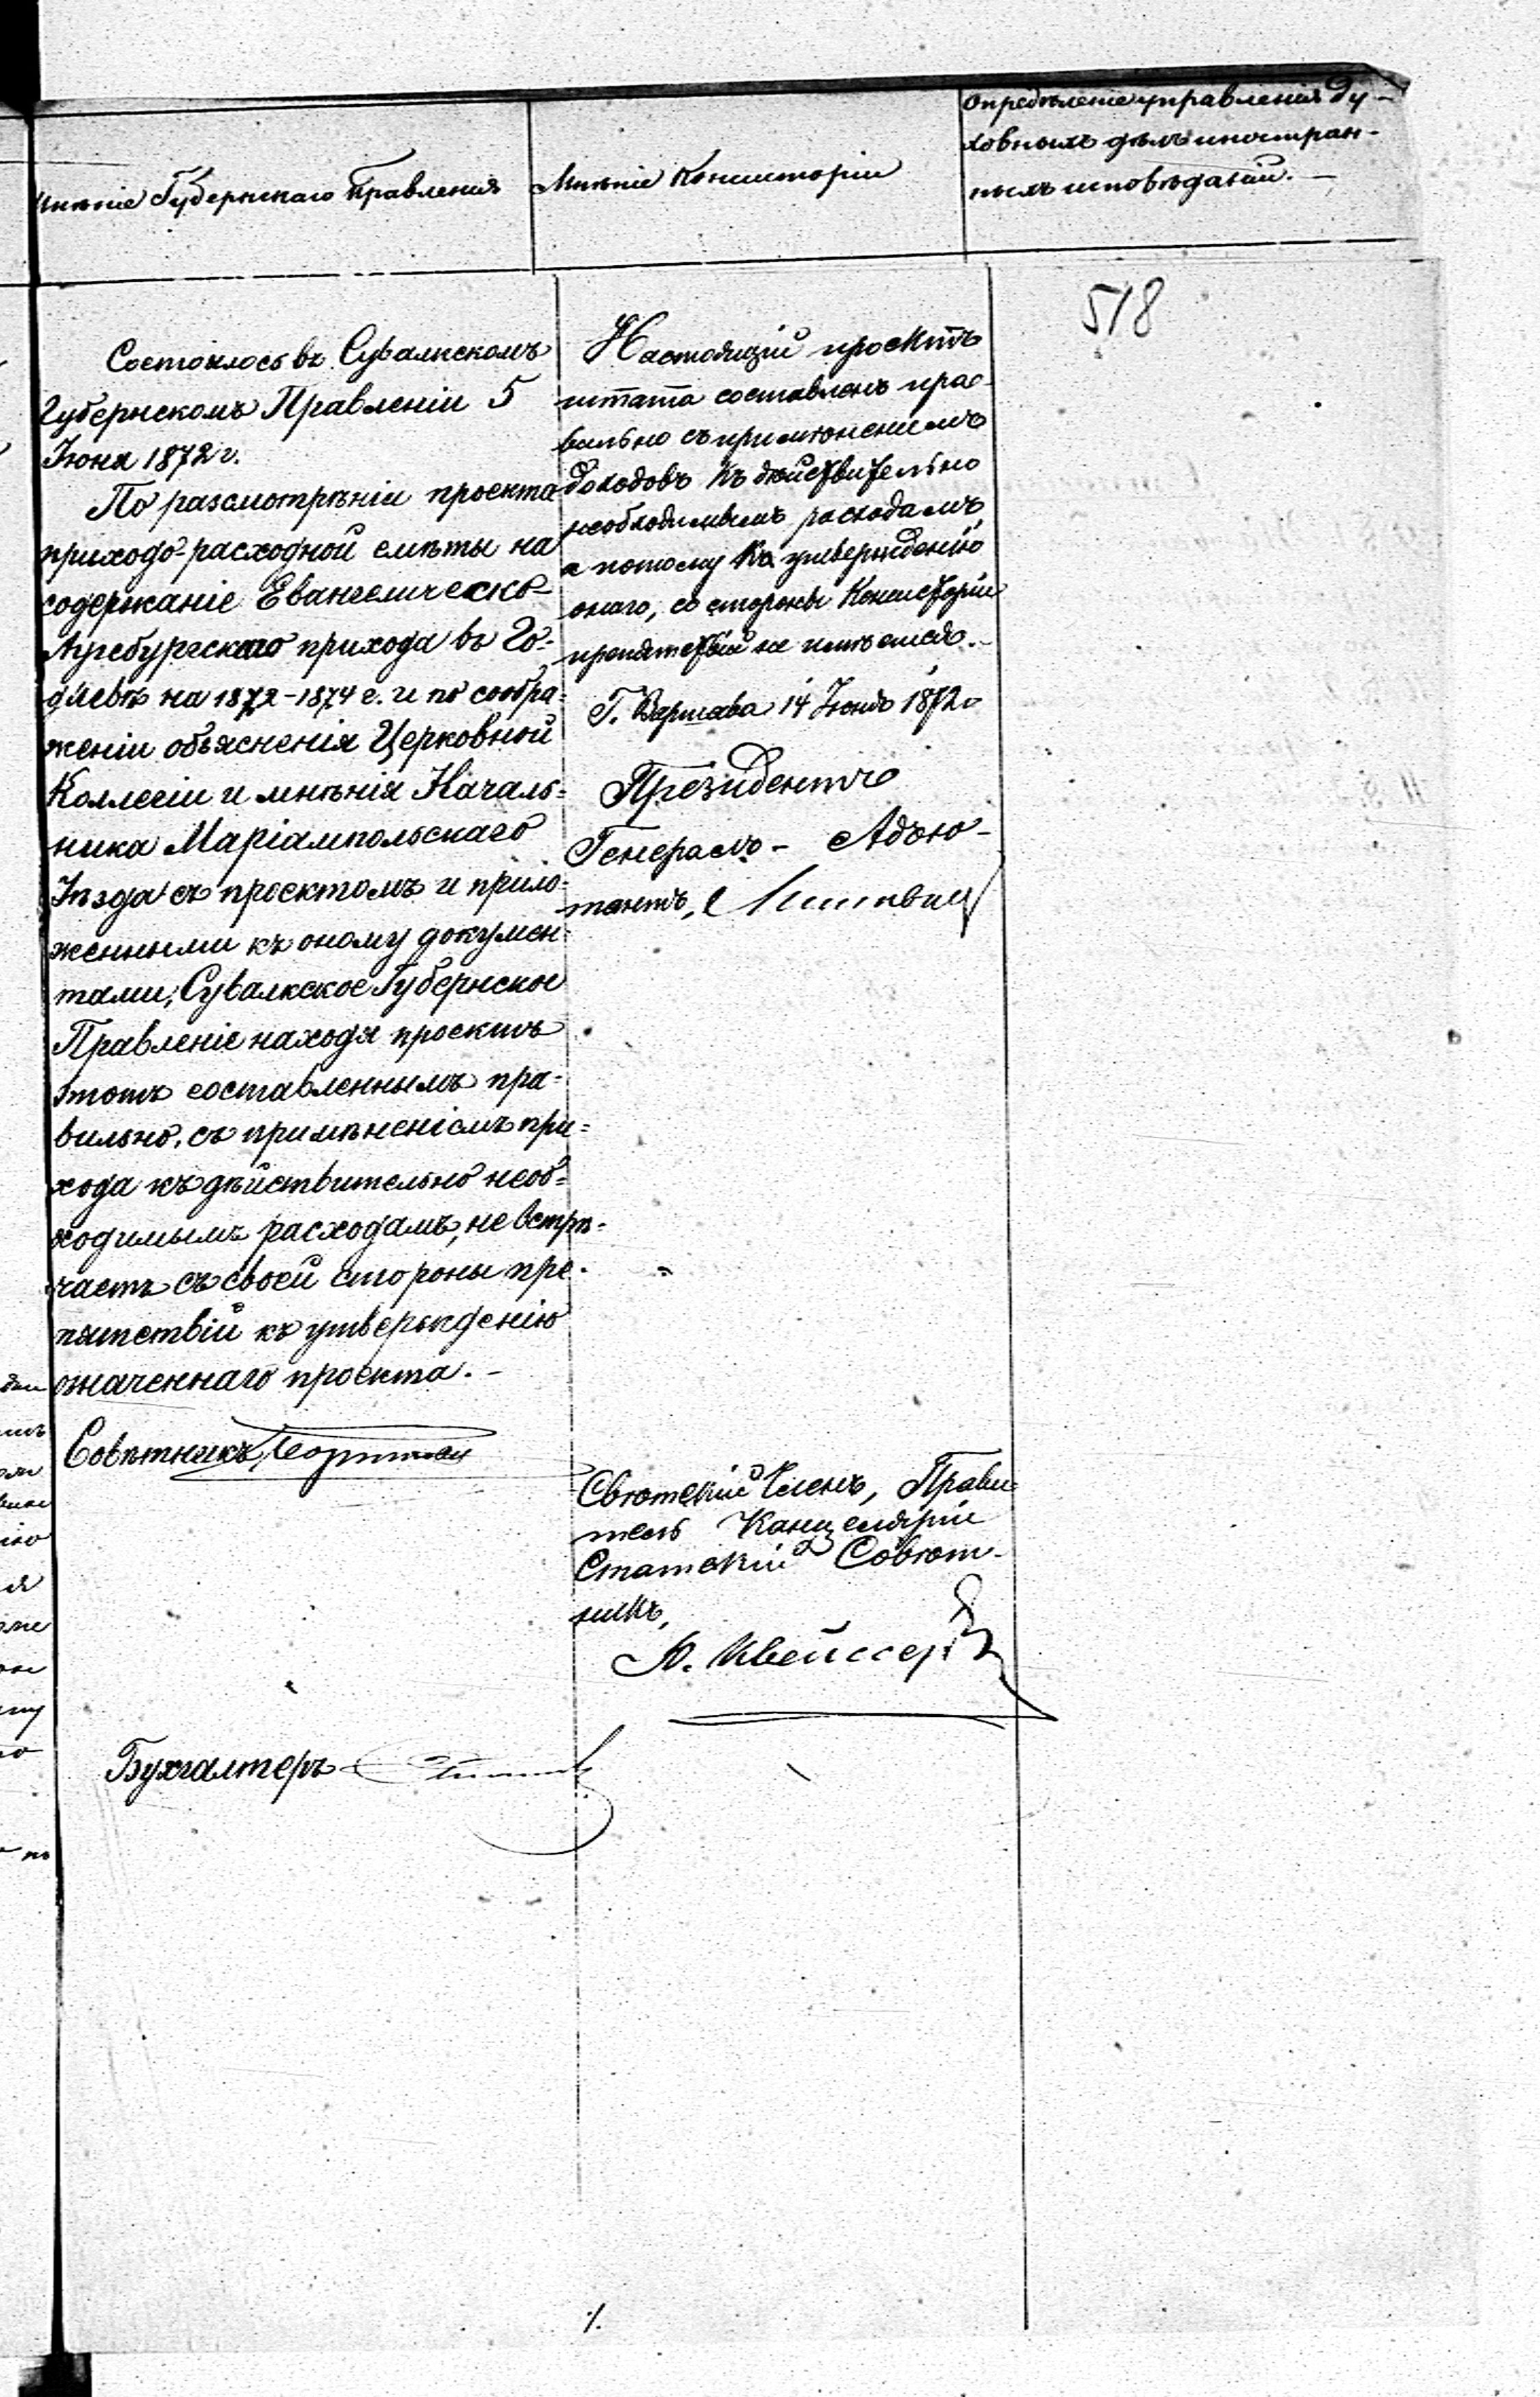 Мнѣніе Губернскаго Правленія
Мнѣніе Консисторіи
Опредѣленіе управленія Ду-
ховныхъ дѣлъ иностран-
ныхъ исповѣданій. —
518
Состоялось въ Сувалкскомъ
Губернскомъ Правленіи 5
Іюня 1872 г.
По разсмотрѣніи проекта
приходо-расходной смѣты на
содержаніе Евангелическо-
Аугсбургскаго прихода въ Го-
длевѣ на 1872-1874 г. и по сообра-
женіи объясненія Церковной
Коллегіи и мнѣнія Началь-
ника Маріампольскаго
Уѣзда съ проектомъ и прило-
женными къ оному докумен-
тами, Сувалкское Губернское
Правленіе находя проектъ
этотъ составленнымъ пра-
вильно, съ примѣненіемъ при-
хода къ дѣйствительно необ-
ходимымъ расходамъ, не встрѣ-
чаетъ съ своей стороны пре-
пятствій къ утвержденію
означеннаго проекта. —
Совѣтникъ,
Бухгалтеръ
Настоящій проектъ
штата составленъ пра-
вильно съ примѣненіемъ
доходовъ къ дѣйствительно
необходимымъ расходамъ,
а потому къ утвержденію
онаго, со стороны Консисторіи
препятствій не имѣется. —
Г. Варшава 14 Іюня 1872 г
Президентъ
Генералъ - Адъю-
тантъ,
Свѣтскій Членъ, Прави-
тель Канцеляріи
Статскій Совѣт-
никъ,